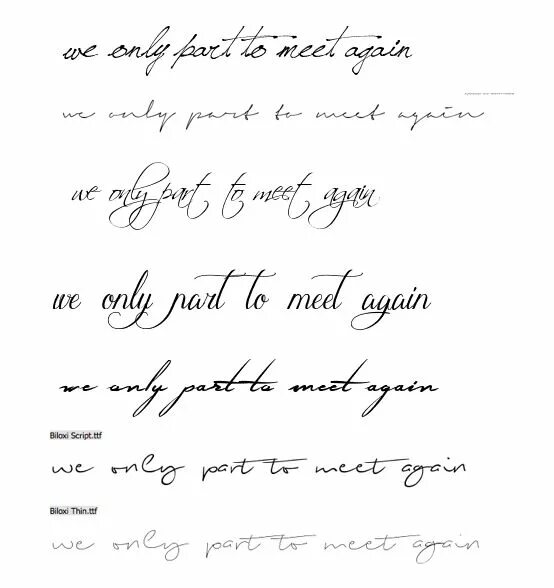 we only part to meet again
we only part to meet again
we only part to meet again
we only part to meet again
we only part to meet again
Biloxi Script.ttf
we only part to meet again
Biloxi Thin.ttf
we only part to meet again